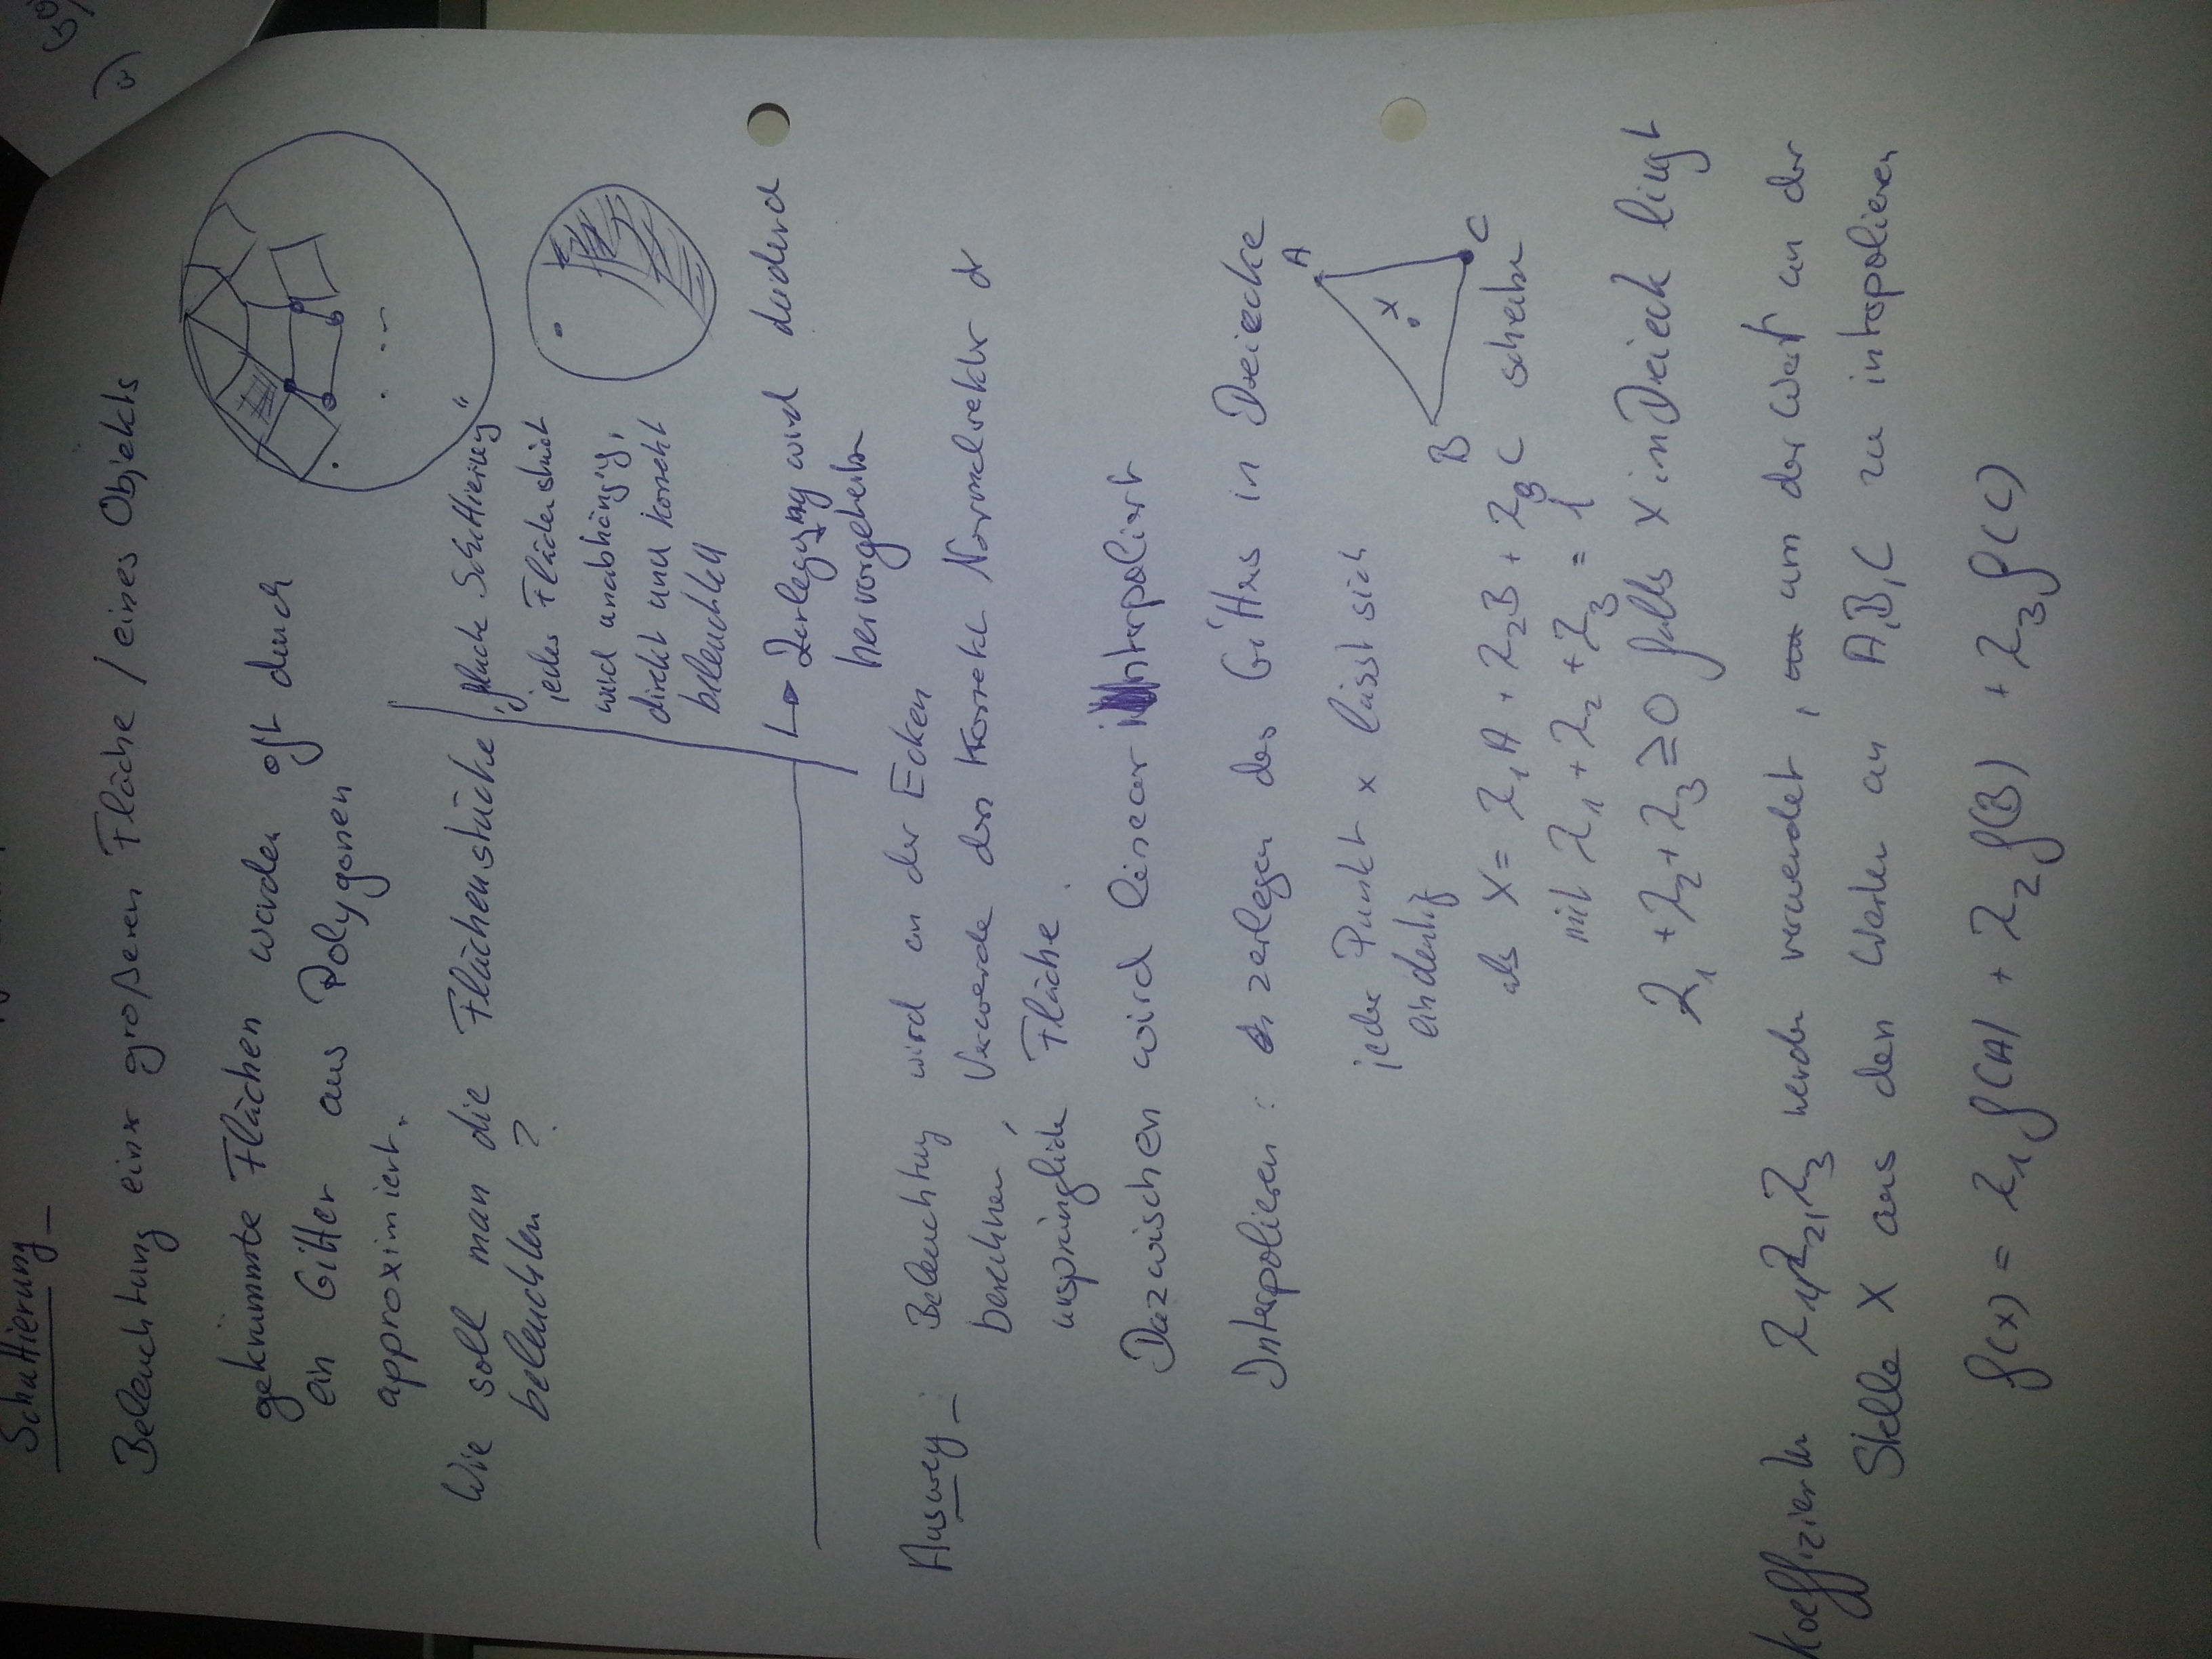 Schattierung
Beleuchtung einer größeren Fläche / eines Objekts
gekrümmte Flächen werden oft durch
ein Gitter aus Polygonen
approximiert.
Wie soll man die Flächenstücke
beleuchten ?
„flache Schattierung“
jedes Flächenstück
wird unabhängig,
direkt und korrekt
beleuchtet
↳ Zerlegung wird dadurch
hervorgehoben
Ausweg : Beleuchtung wird an der Ecken
berechnen, Verwende den korrekten Normalvektor der
ursprünglichen Fläche.
Dazwischen wird linear interpoliert
Interpolieren : zerlegen des Gitters in Dreiecke
jeder Punkt x lässt sich
eindeutig
A
x
B
C
als X = λ₁A + λ₂B + λ₃C schreiben
mit λ₁ + λ₂ + λ₃ = 1
λ₁ + λ₂ + λ₃ ≥ 0 falls X in Dreieck liegt
Koeffizienten λ₁, λ₂, λ₃ werden verwendet, um der Wert an der
Stelle X aus den Werten an A, B, C zu interpolieren
f(x) = λ₁ f(A) + λ₂ f(B) + λ₃ f(C)